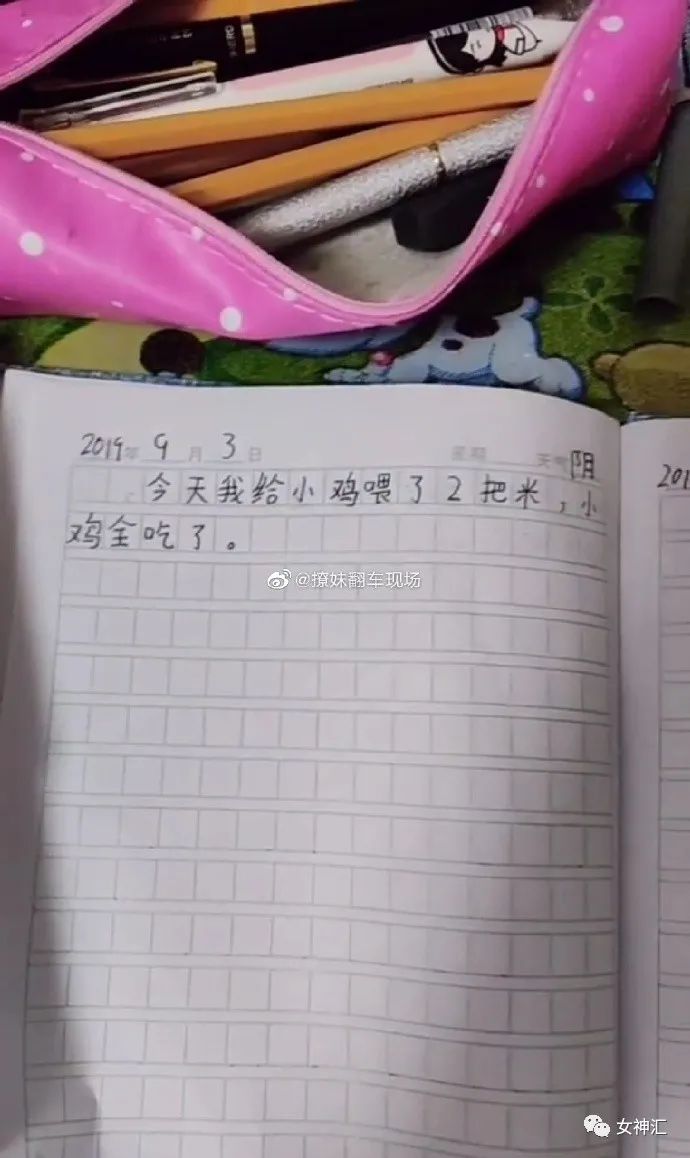 HERO
2019年 9 月 3 日 星期 天气 阴
今天我给小鸡喂了2把米，小
鸡全吃了。
201
@撩妹翻车现场
女神汇